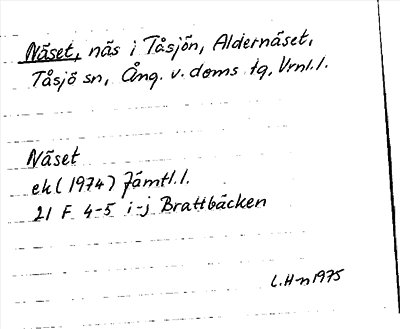 Näset, näs i Tåsjön, Aldernäset,
Tåsjö sn, Ång. v. doms tg, Vrnl. l.
Näset
ek (1974) Jämtl. l.
21 F 4-5 i-j Brattbäcken
L.H-n 1975